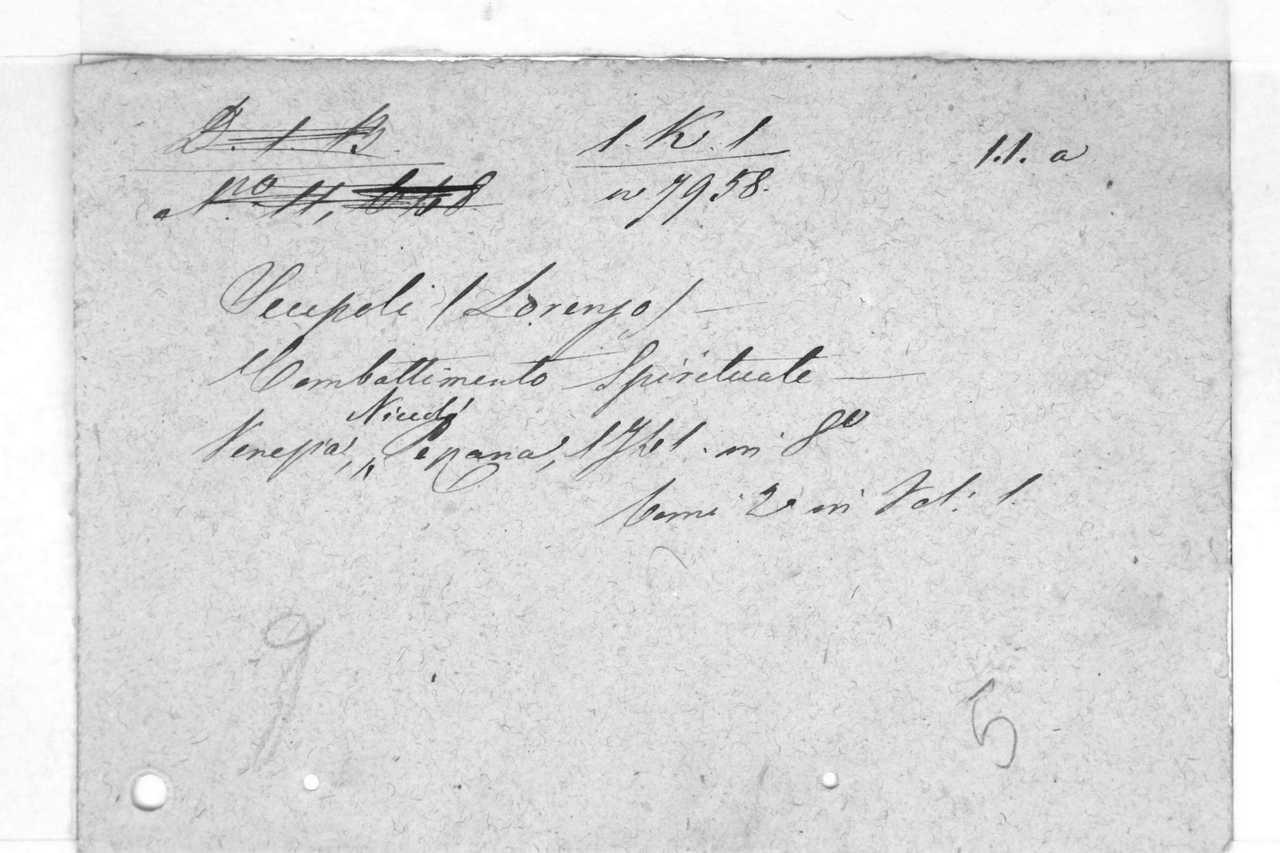 D. 1. B. 1. K. 1 1.1. a
No. 11, n 7958.
Scupoli (Lorenzo) —
Combattimento Spirituale —
Venezia, Pezzana, 1741. in 8o
Tomi 2 in Vol: 1.
9
5